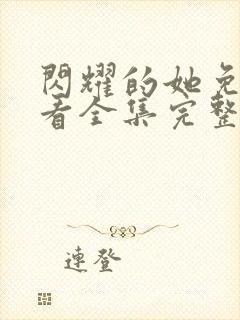 閃耀的她免
看全集完整
連登